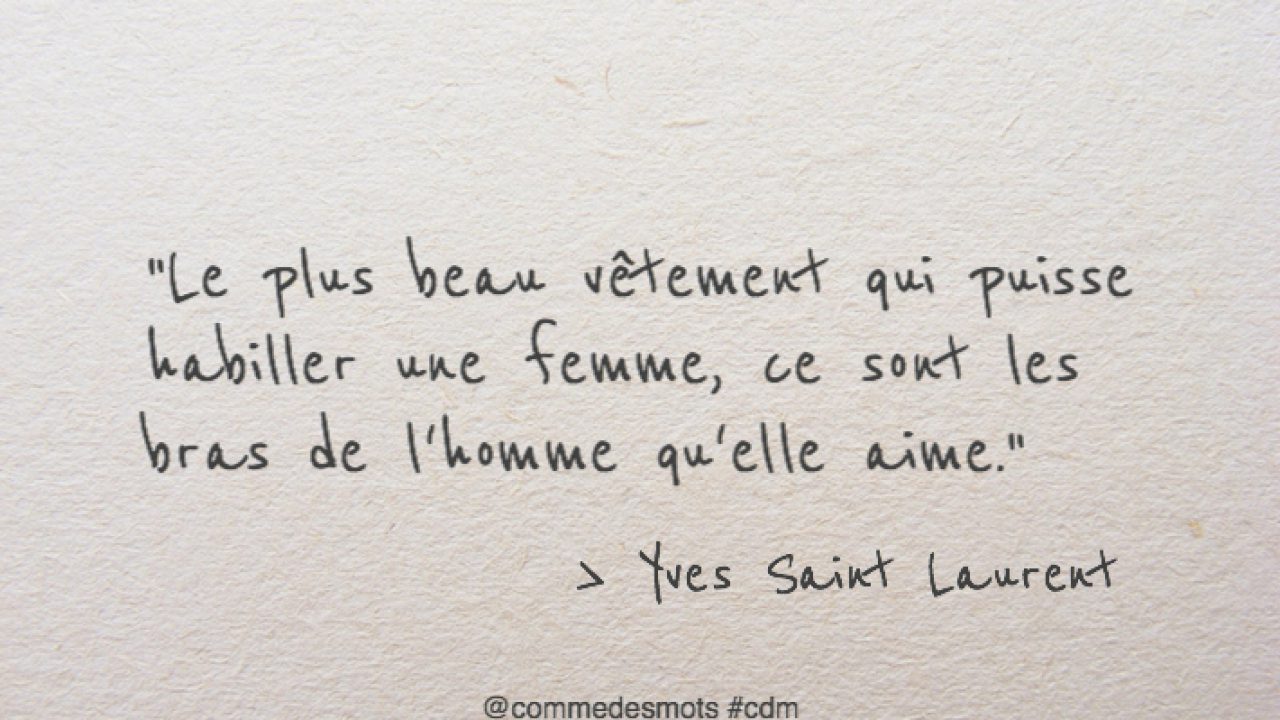 "Le plus beau vêtement qui puisse
habiller une femme, ce sont les
bras de l'homme qu'elle aime."
> Yves Saint Laurent
@commedesmots #cdm